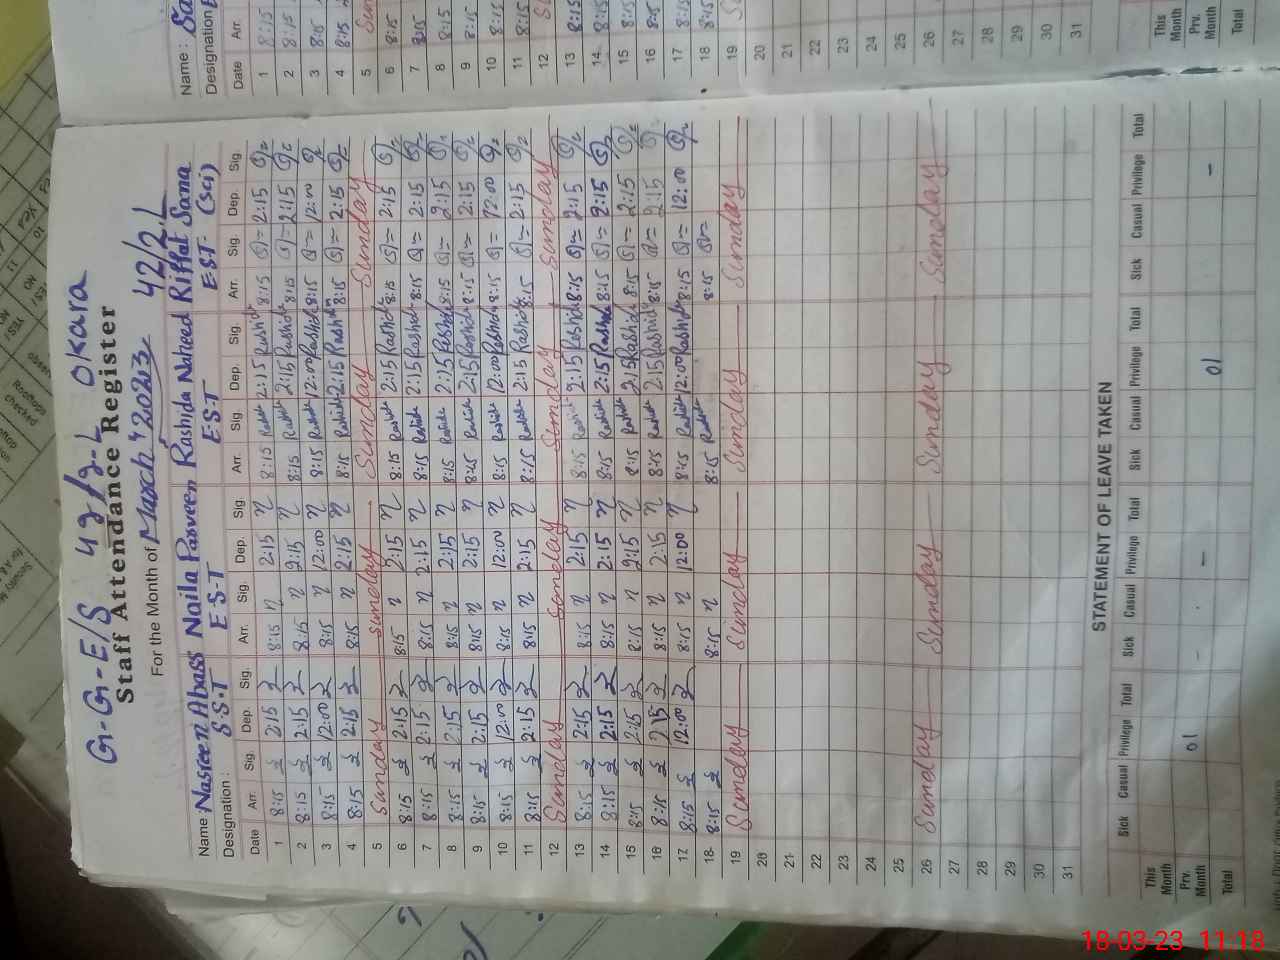 G-G-E/S 42/2-L OKara
Staff Attendance Register
For the Month of March 2023 42/2.L
Name : Nasreen Abass Naila Parveen Rashida Naheed Riffat Sana
Designation : S.S.T E S-T E S-T E S-T- (Sci)
Date Arr. Sig. Dep. Sig. Arr. Sig. Dep. Sig. Arr. Sig. Dep. Sig. Arr. Sig. Dep. Sig.
1 8:15 2:15 8:15 n 2:15 n 8:15 Rashida 2:15 Rashida 8:15 2:15
2 8:15 2:15 8:15 n 2:15 n 8:15 Rashida 2:15 Rashida 8:15 2:15
3 8:15 12:00 8:15 n 12:00 n 8:15 Rashida 12:00 Rashida 8:15 12:00
4 8:15 2:15 8:15 n 2:15 n 8:15 Rashida 2:15 Rashida 8:15 2:15
5 Sunday Sunday Sunday Sunday
6 8:15 2:15 8:15 n 2:15 n 8:15 Rashida 2:15 Rashida 8:15 2:15
7 8:15 2:15 8:15 n 2:15 n 8:15 Rashida 2:15 Rashida 8:15 2:15
8 8:15 2:15 8:15 n 2:15 n 8:15 Rashida 2:15 Rashida 8:15 2:15
9 8:15 2:15 8:15 n 2:15 n 8:15 Rashida 2:15 Rashida 8:15 2:15
10 8:15 12:00 8:15 n 12:00 n 8:15 Rashida 12:00 Rashida 8:15 12:00
11 8:15 2:15 8:15 n 2:15 n 8:15 Rashida 2:15 Rashida 8:15 2:15
12 Sunday Sunday Sunday Sunday
13 8:15 2:15 8:15 n 2:15 n 8:15 Rashida 2:15 Rashida 8:15 2:15
14 8:15 2:15 8:15 n 2:15 n 8:15 Rashida 2:15 Rashida 8:15 2:15
15 8:15 2:15 8:15 n 2:15 n 8:15 Rashida 2:15 Rashida 8:15 2:15
16 8:15 2:15 8:15 n 2:15 n 8:15 Rashida 2:15 Rashida 8:15 2:15
17 8:15 12:00 8:15 n 12:00 n 8:15 Rashida 12:00 Rashida 8:15 12:00
18 8:15 8:15 n 8:15 Rashida 8:15
19 Sunday Sunday Sunday Sunday
20
21
22
23
24
25
26 Sunday Sunday Sunday Sunday
27
28
29
30
31
STATEMENT OF LEAVE TAKEN
Sick Casual Privilege Total Sick Casual Privilege Total Sick Casual Privilege Total Sick Casual Privilege Total
This Month
Prv. Month 01 - - 01 -
Total
Name : Sa
Designation
Date Arr.
1 8:15
2 8:15
3 8:15
4 8:15
5 Sun
6 8:15
7 8:15
8 8:15
9 8:15
10 8:15
11 8:15
12 S
13 8:15
14 8:15
15 8:15
16 8:15
17 8:15
18 8:15
19 S
20
21
22
23
24
25
26
27
28
29
30
31
This Month
Prv. Month
Total
18-03-23 11:18